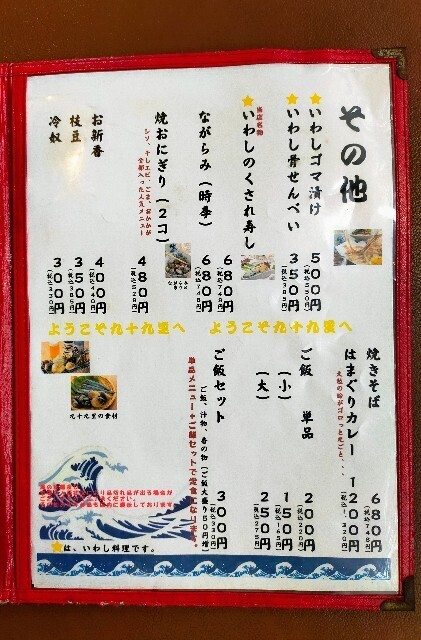 その他
⭐いわしゴマ漬け
500円
(税込550円)
⭐いわし骨せんべい
350円
(税込385円)
当店名物
⭐いわしのくされ寿し
680円
(税込748円)
ながらみ(時季)
680円
(税込748円)
ながらみ
焼おにぎり(2コ)
シソ、干しエビ、ごま、おかかが
全部入った人気メニュー
480円
(税込528円)
お新香
400円
(税込440円)
枝豆
350円
(税込385円)
冷奴
300円
(税込330円)
ようこそ九十九里へ
ようこそ九十九里へ
焼きそば
680円
(税込748円)
はまぐりカレー
大粒の蛤がゴロっと丸ごと、、、
1200円
(税込1,320円)
ご飯 単品
200円
(税込220円)
(小)
150円
(税込165円)
(大)
250円
(税込275円)
ご飯セット
ご飯、汁物、香の物(ご飯大盛り50円増)
300円
(税込330円)
単品メニュー+ご飯セットで定食になります。
九十九里の食材
品切れ品が出る場合が
ください。
⭐は、いわし料理です。